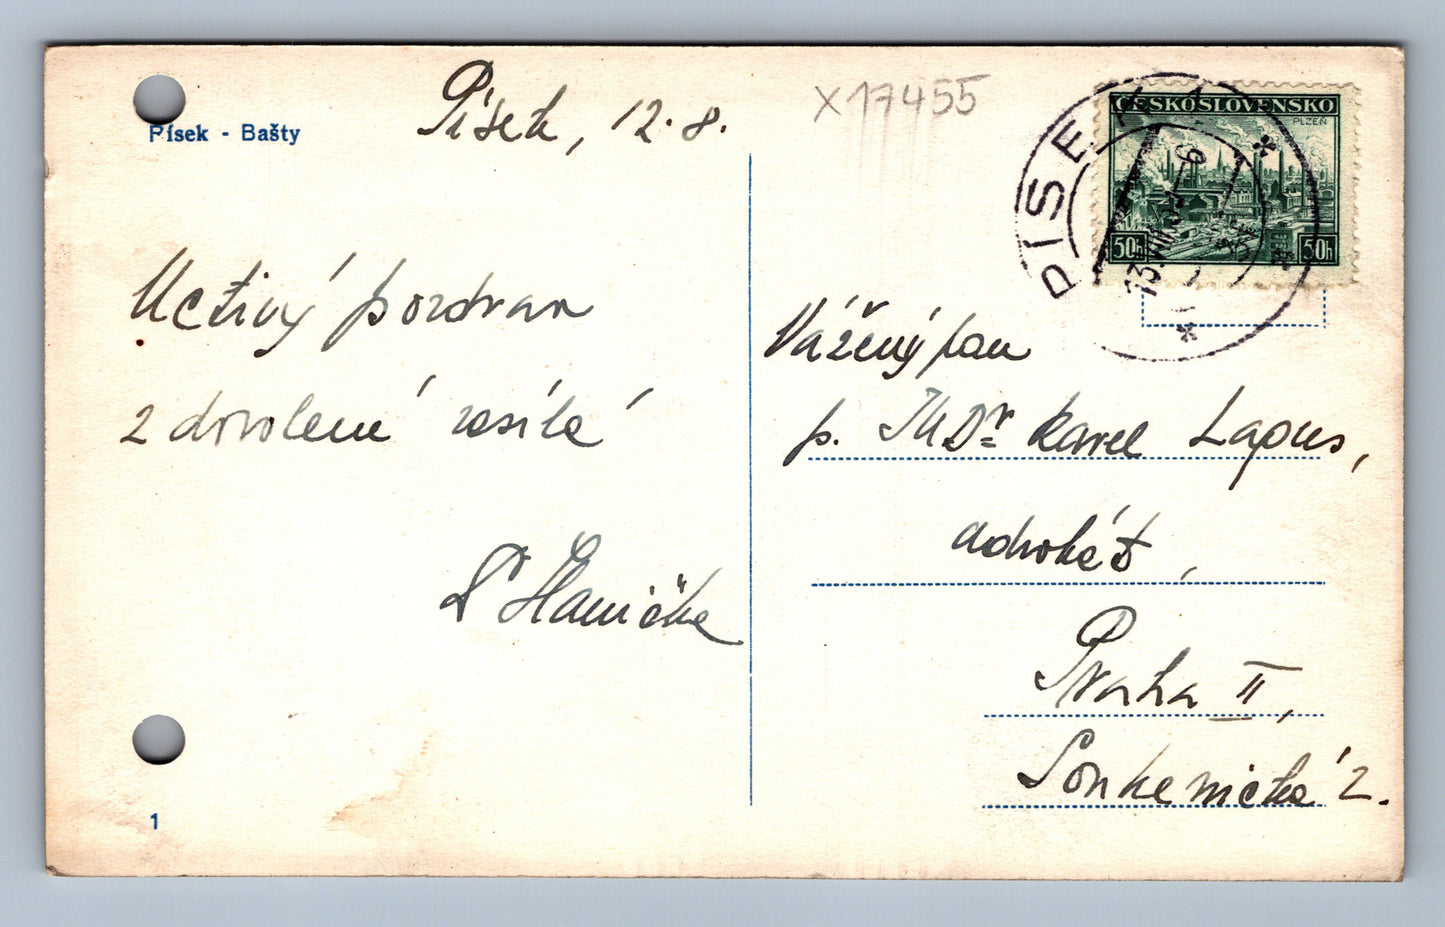 Písek - Bašty
Písek, 12. 8.
X 17455
ČESKOSLOVENSKO
PLZEŇ
50h 50h
PÍSEK 1
13.VIII.
Uctivý pozdrav
z dovolené zasílá
Vážený pan
p. JUDr Karel Lapus,
advokát,
Praha II,
Soukenická 2.
1